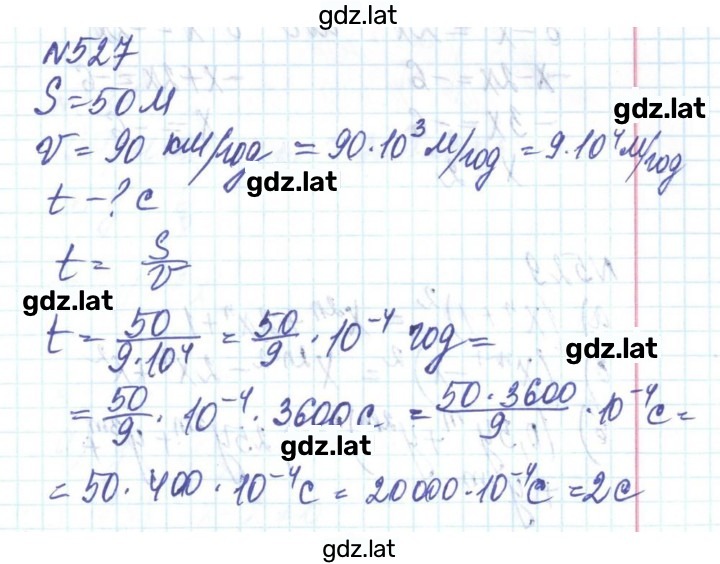 gdz.lat
N527
S = 50 м
gdz.lat
v = 90 км/год = 90·10³ м/год = 9·10⁴ м/год
gdz.lat
t - ? с
t = S/v
gdz.lat
t = 50/(9·10⁴) = 50/9 · 10⁻⁴ год =
gdz.lat
= 50/9 · 10⁻⁴ · 3600 с = (50·3600)/9 · 10⁻⁴ с =
gdz.lat
= 50 · 400 · 10⁻⁴ с = 20000·10⁻⁴ с = 2 с
gdz.lat